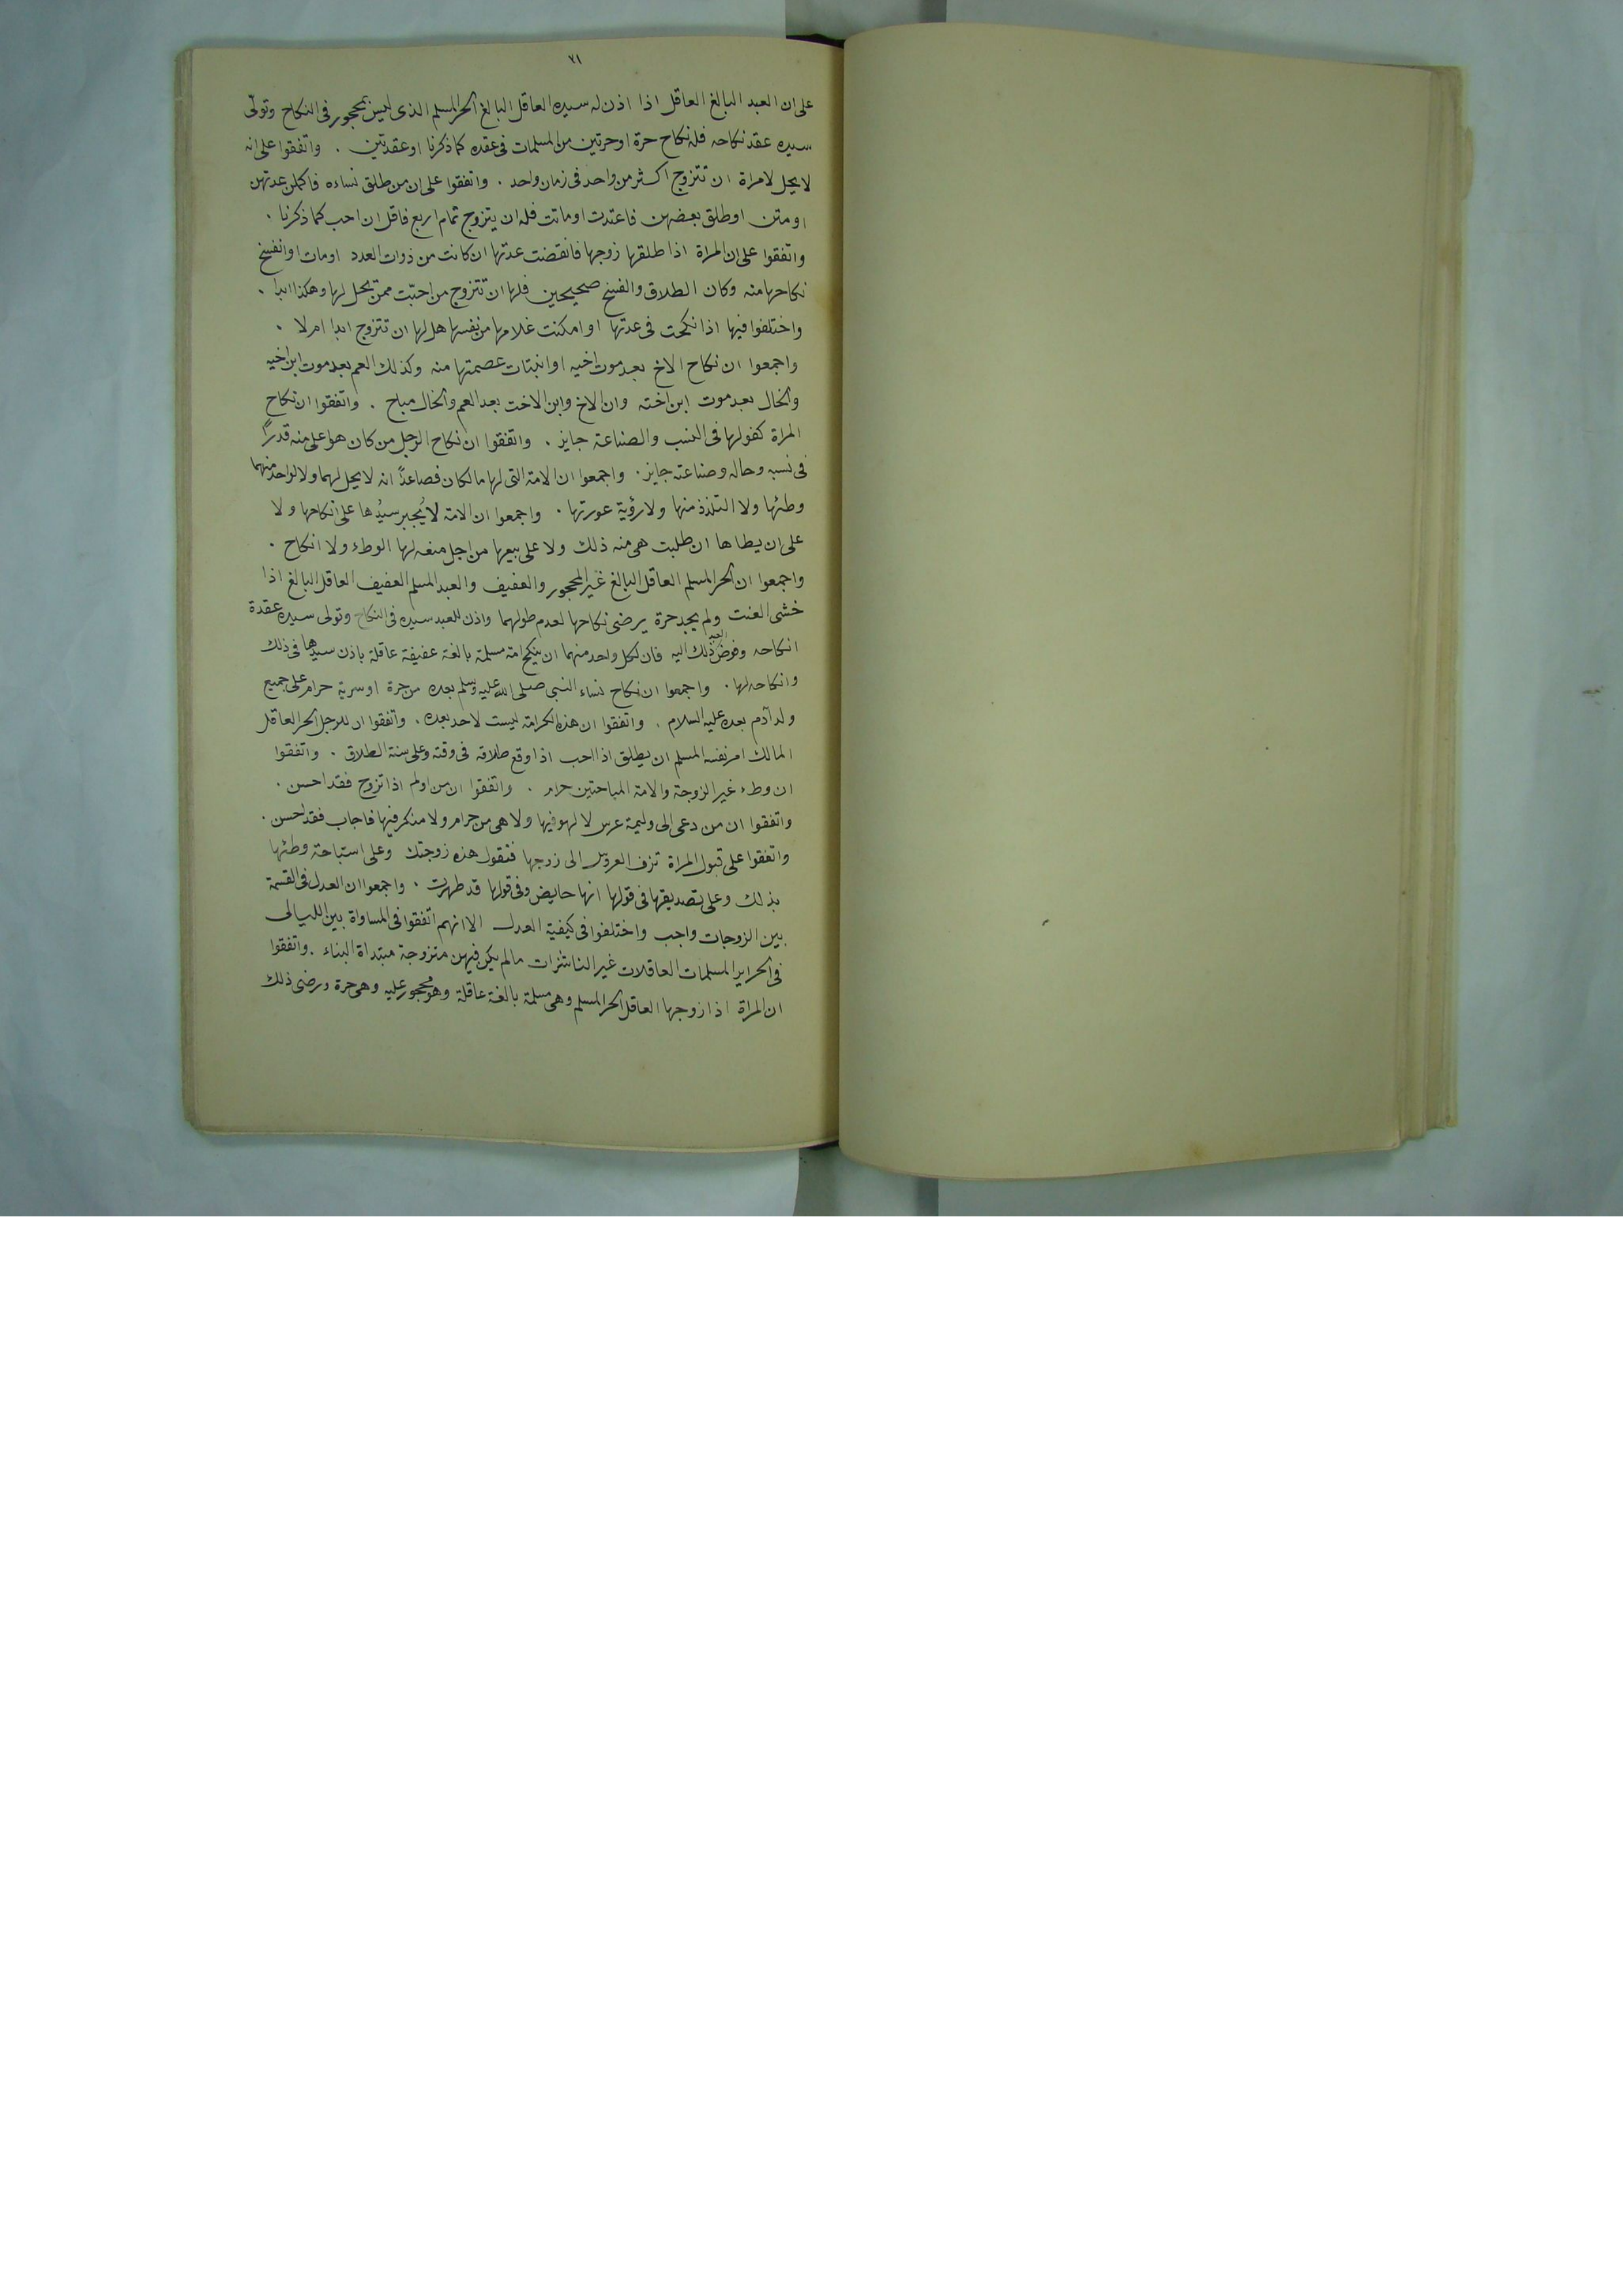 ٧١
على ان العبد البالغ العاقل اذا اذن له سيده العاقل البالغ الحر المسلم الذى ليس بمحجور فى النكاح وتولّى
سيده عقد نكاحه فله نكاح حرة او حرتين من المسلمات فى عقده كما ذكرنا او عقدتين . واتفقوا على انه
لا يحل لامراة ان تتزوج اكثر من واحد فى زمان واحد . واتفقوا على ان من طلق نساءه فاكملن عدتهن
او متن او طلق بعضهن فاعتدت او ماتت فله ان يتزوج تمام اربع فاقل ان احب كما ذكرنا .
واتفقوا على ان المراة اذا طلقها زوجها فانقضت عدتها ان كانت من ذوات العدد او مات او انفسخ
نكاحها منه وكان الطلاق والفسخ صحيحين فلها ان تتزوج من احبّت ممن يحل لها وهكذا ابدا .
واختلفوا فيها اذا نكحت فى عدتها او امكنت غلامها من نفسها هل لها ان تتزوج ابدا ام لا .
واجمعوا ان نكاح الاخ بعد موت اخيه او انبتات عصمتها منه وكذلك العم بعد موت ابن اخيه
والخال بعد موت ابن اخته وان الاخ وابن الاخت بعد العم والخال مباح . واتفقوا ان نكاح
المراة كفولها فى النسب والصناعة جايز . واتفقوا ان نكاح الرجل من كان هو اعلى منه قدرًا
فى نسبه وحاله وصناعته جايز . واجمعوا ان الامة التى لها مالكان فصاعدًا انه لا يحل لهما ولا لواحد منهما
وطئها ولا التلذذ منها ولا رؤية عورتها . واجمعوا ان الامة لا يُجبر سيّدها على انكاحها ولا
على ان يطاها ان طلبت هى منه ذلك ولا على بيعها من اجل منعه لها الوطء ولا انكاح .
واجمعوا ان الحر المسلم العاقل البالغ غير المحجور والعفيف والعبد المسلم العفيف العاقل البالغ اذا
خشى العنت ولم يجد حرة يرضى نكاحها لعدم طولهما واذن للعبد سيده فى النكاح وتولى سيده عقدة
انكاحه وفوض ذلك اليه فان لكل واحد منهما ان ينكح امة مسلمة بالغة عفيفة عاقلة باذن سيدها فى ذلك
وانكاحه لها . واجمعوا ان نكاح نساء النبى صلى الله عليه وسلم بعده من حرة او سرية حرام على جميع
ولد آدم بعده عليه السلام . واتفقوا ان هذه الكرامة ليست لاحد بعده . واتفقوا ان للرجل الحر العاقل
المالك امر نفسه المسلم ان يطلق اذا احب اذا وقع طلاقه فى وقته وعلى سنة الطلاق . واتفقوا
ان وطء غير الزوجة والامة المباحتين حرام . واتفقوا ان من اولم اذا تزوج فقد احسن .
واتفقوا ان من دعى الى وليمة عرس لا لهو فيها ولا هى من حرام ولا منكر فيها فاجاب فقد احسن .
واتفقوا على قبول المراة تزف العروس الى زوجها فتقول هذه زوجتك وعلى استباحة وطئها
بذلك وعلى تصديقها فى قولها انها حايض وفى قولها قد طهرت . واجمعوا ان العدل فى القسمة
بين الزوجات واجب واختلفوا فى كيفية العدل الا انهم اتفقوا فى المساواة بين الليالى
فى الحراير المسلمات العاقلات غير الناشزات ما لم يكن فيهن متزوجة مبتداة البناء . واتفقوا
ان المراة اذا زوجها العاقل الحر المسلم وهى مسلمة بالغة عاقلة وهو محجور عليه وهى حرة ورضى ذلك